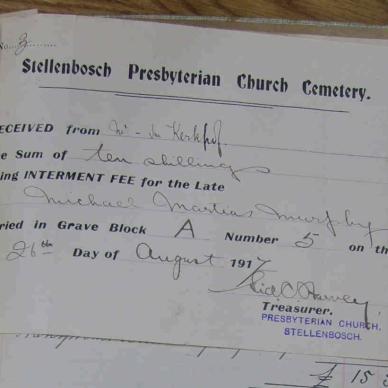 No. 3
Stellenbosch Presbyterian Church Cemetery.
ECEIVED from
e Sum of ten shillings
ing INTERMENT FEE for the Late
Michael Martias Murphy
ried in Grave Block A Number 5 on th
26th Day of August 1917
Treasurer.
PRESBYTERIAN CHURCH,
STELLENBOSCH.
£ 15